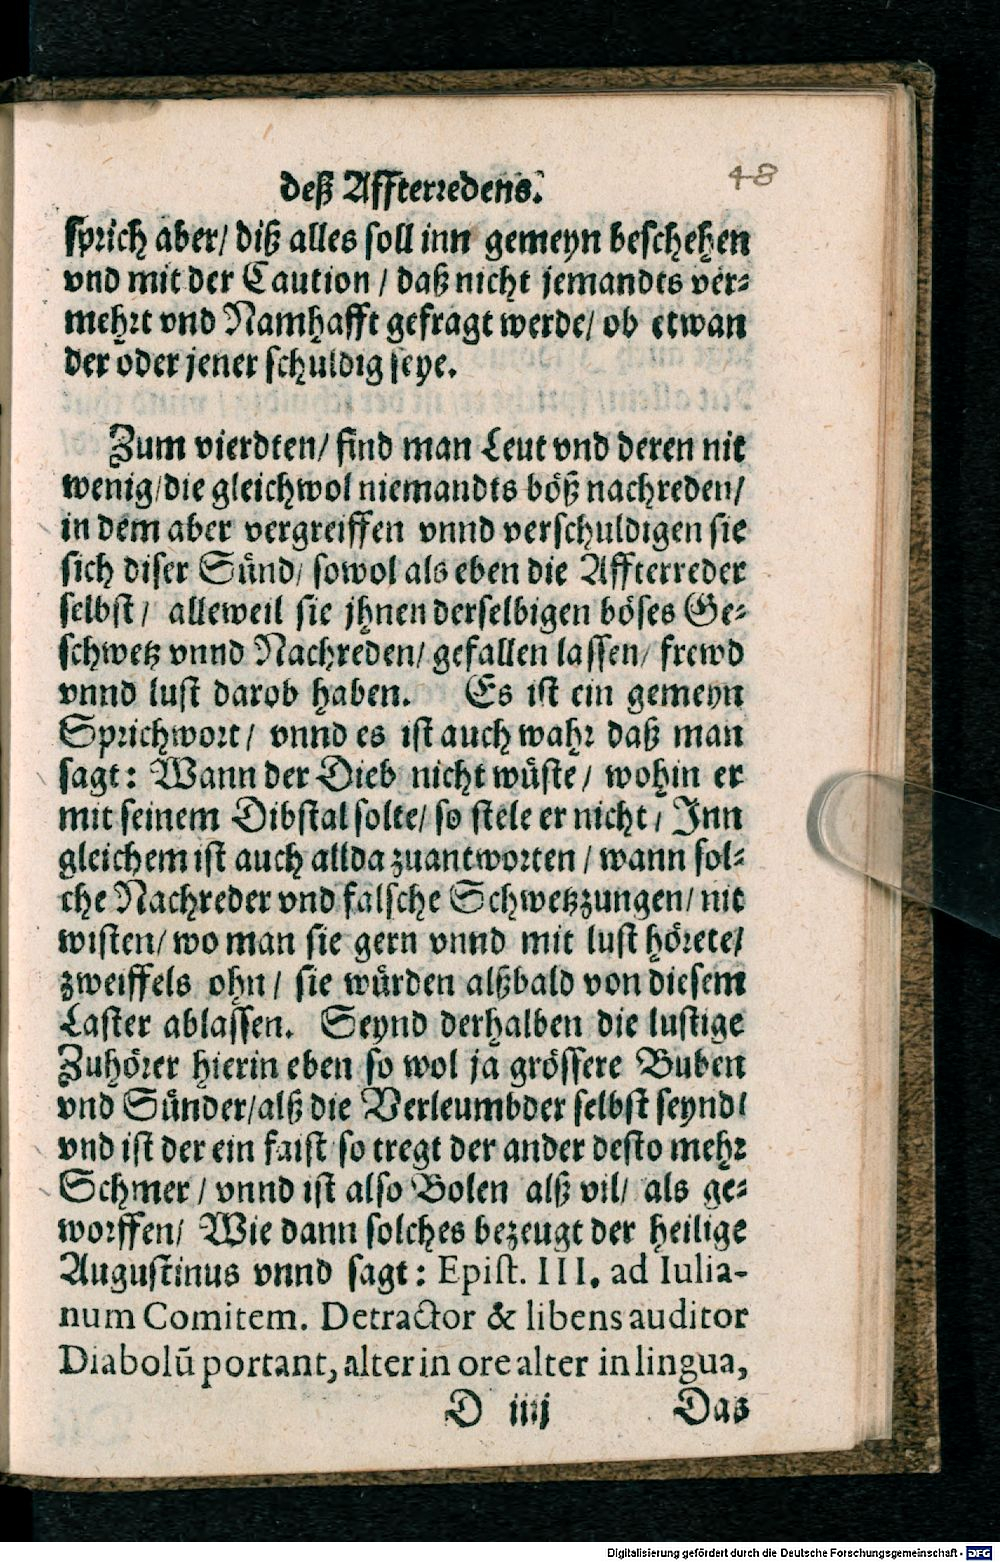 48
deß Affterredens.
sprich aber/ diß alles soll inn gemeyn beschehen
vnd mit der Caution / daß nicht jemandts ver-
mehrt vnd Namhafft gefragt werde/ ob etwan
der oder jener schuldig seye.
Zum vierdten/ find man Leut vnd deren nit
wenig/die gleichwol niemandts böß nachreden/
in dem aber vergreiffen vnnd verschuldigen sie
sich diser Sünd/ sowol als eben die Affterreder
selbst / alleweil sie jhnen derselbigen böses Ge-
schwetz vnnd Nachreden/ gefallen lassen/ frewd
vnnd lust darob haben. Es ist ein gemeyn
Sprichwort/ vnnd es ist auch wahr daß man
sagt: Wann der Dieb nicht wüste / wohin er
mit seinem Dibstal solte/ so stele er nicht / Inn
gleichem ist auch allda zuantworten / wann sol-
che Nachreder vnd falsche Schwetzzungen/ nit
wisten/ wo man sie gern vnnd mit lust hörete/
zweiffels ohn / sie würden alßbald von diesem
Laster ablassen. Seynd derhalben die lustige
Zuhörer hierin eben so wol ja grössere Buben
vnd Sünder/alß die Verleumbder selbst seynd/
vnd ist der ein faist so tregt der ander desto mehr
Schmer / vnnd ist also Bolen alß vil/ als ge-
worffen/ Wie dann solches bezeugt der heilige
Augustinus vnnd sagt: Epist. III. ad Iulia-
num Comitem. Detractor & libens auditor
Diabolū portant, alter in ore alter in lingua,
D iiij Das
Digitalisierung gefördert durch die Deutsche Forschungsgemeinschaft - DFG